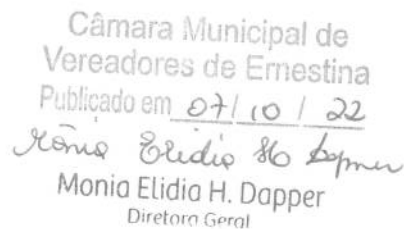 Câmara Municipal de
Vereadores de Ernestina
Publicado em 07/ 10 / 22
Mônia Elidia H Dapper
Monia Elidia H. Dapper
Diretora Geral